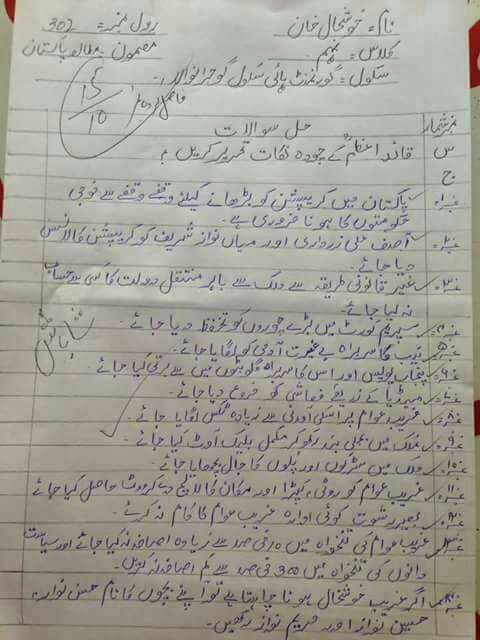 نام = خوشحال خان رول نمبر = 302
کلاس = نہم مضمون = مطالعہ پاکستان
سکول = گورنمنٹ ہائی سکول گوجرانوالہ
15
10
نمبر شمار حل سوالات
س قائد اعظمؒ کے چودہ نکات تحریر کریں؟
ج
نمبر1 پاکستان میں کریپشن کو بڑھانے کیلئے وقفے وقفے سے فوجی
حکومتوں کا ہونا ضروری ہے۔
نمبر2 آصف علی زرداری اور میاں نواز شریف کو کریپشن کا لائسنس
دیا جائے۔
نمبر3 غیر قانونی طریقہ سے ملک سے باہر منتقل دولت کا کسی سے حساب
نہ لیا جائے۔
نمبر4 سپریم کورٹ میں بڑے چوروں کو تحفظ دیا جائے
نمبر5 نیب کا سربراہ بے غیرت آدمی کو لگایا جائے۔
نمبر6 پنجاب پولیس اور اس کا سربراہ گلو بٹوں میں سے بھرتی کیا جائے
نمبر7 میڈیا کے ذریعے فحاشی کو فروغ دیا جائے۔
نمبر8 غریب عوام پر اسکی آمدنی سے زیادہ ٹیکس لگایا جائے۔
نمبر9 ملک میں بجلی بند رکھ کر مکمل بلیک آوٹ کیا جائے
نمبر10 ملک میں سڑکوں اور پلوں کا جال بچھایا جائے۔
نمبر11 غریب عوام کو روٹی، کپڑا اور مکان کا لالچ دیکر ووٹ حاصل کیا جائے
نمبر12 بغیر رشوت کوئی ادارہ غریب عوام کا کام نہ کرے۔
نمبر13 غریب عوام کی تنخواہ میں 10 فی صد سے زیادہ اضافہ نہ کیا جائے اور سیاست
دانوں کی تنخواہ میں 300 فی صد سے کم اضافہ نہ کریں۔
نمبر14 اگر غریب خوشحال ہونا چاہتا ہے تو اپنے بچوں کا نام حسن نواز،
حسین نواز اور مریم نواز رکھیں۔